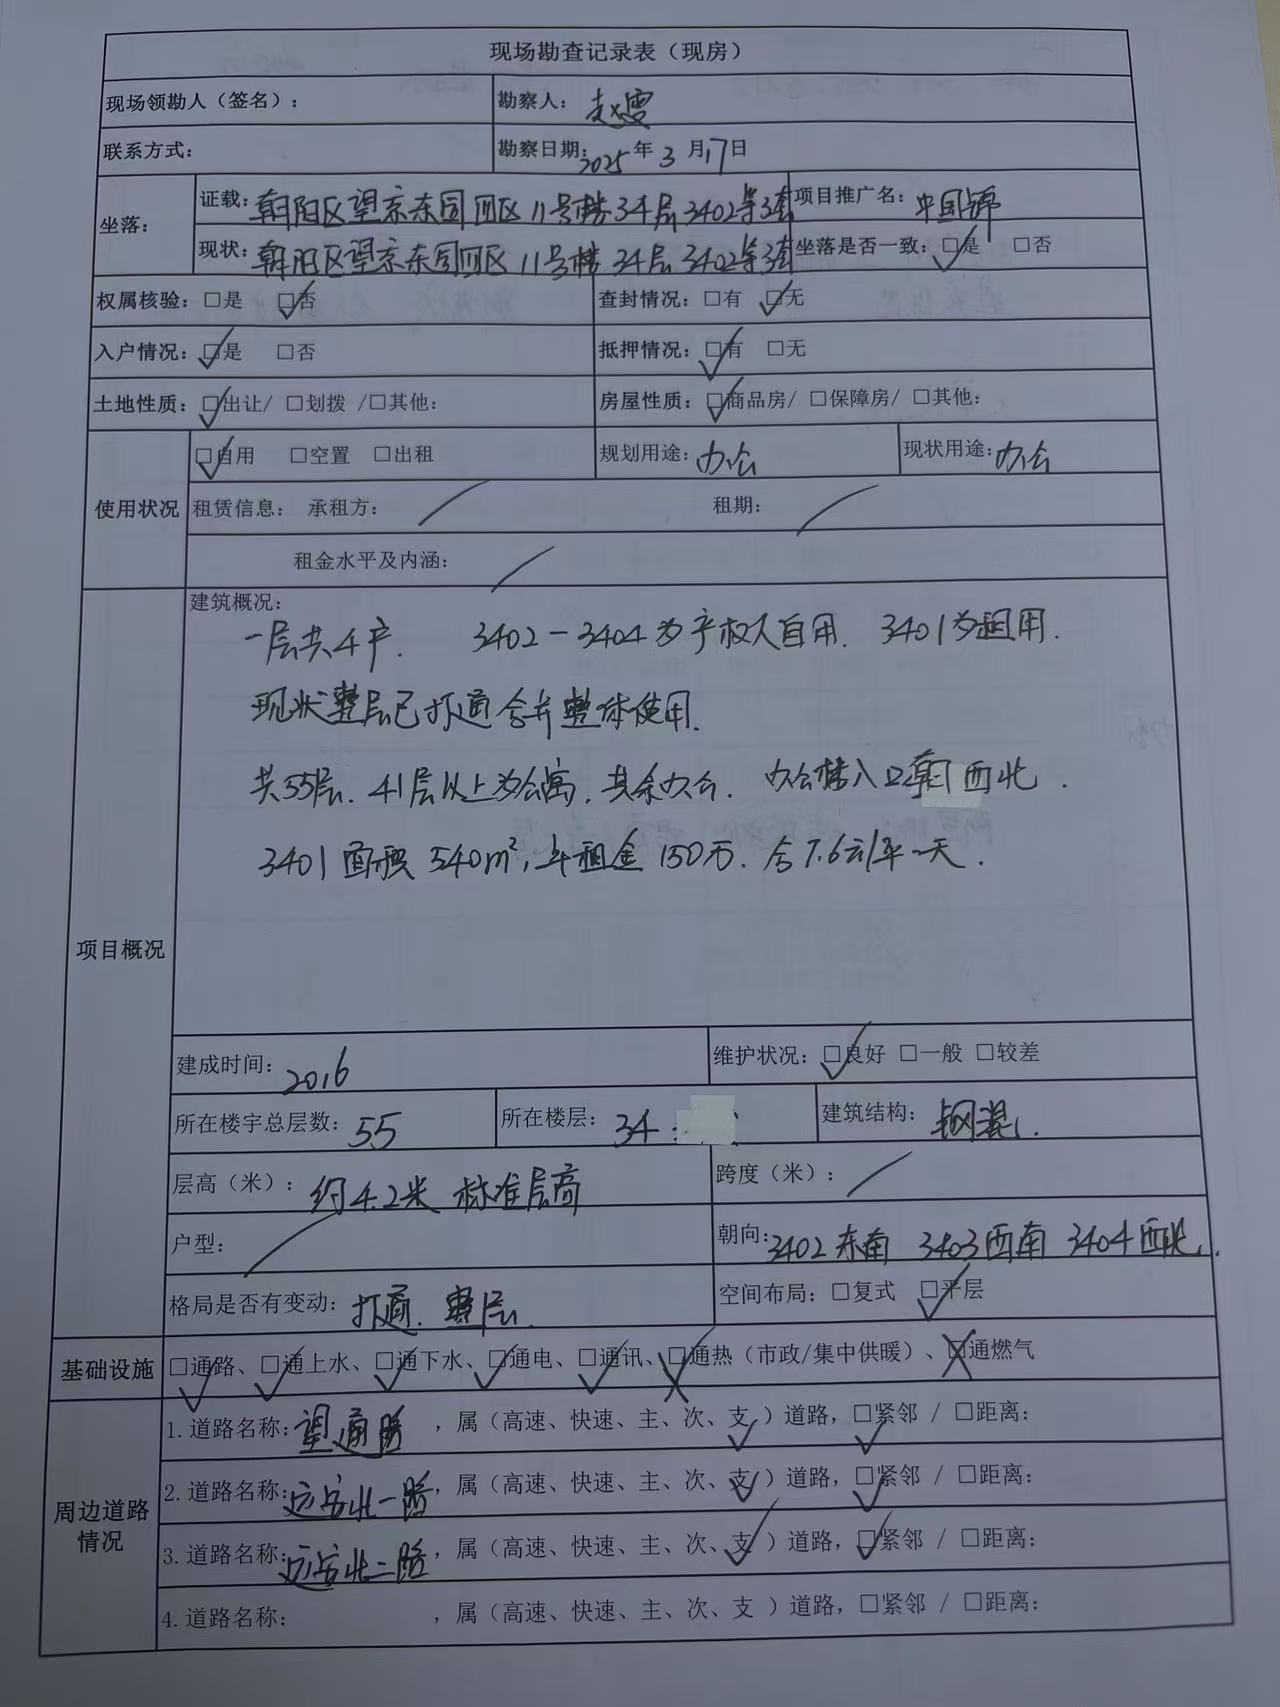 现场勘查记录表（现房）
现场领勘人（签名）： 勘察人：赵雯
联系方式： 勘察日期：2025年3月17日
坐落： 证载：朝阳区望京东园四区11号楼34层3402等3套 项目推广名：中国锦
现状：朝阳区望京东园四区11号楼34层3402等3套 坐落是否一致：☑是 □否
权属核验：□是 ☑否 查封情况：□有 ☑无
入户情况：☑是 □否 抵押情况：☑有 □无
土地性质：☑出让/ □划拨 /□其他： 房屋性质：☑商品房/ □保障房/ □其他：
使用状况 ☑自用 □空置 □出租 规划用途：办公 现状用途：办公
租赁信息： 承租方：／ 租期：／
租金水平及内涵：／
项目概况 建筑概况：
一层共4户. 3402-3404为产权人自用. 3401为租用.
现状整层已打通合并整体使用.
共55层. 41层以上为公寓, 其余办公. 办公楼入口朝西北.
3401面积540m², 年租金150万. 合7.6元/平·天.
建成时间：2016 维护状况：☑良好 □一般 □较差
所在楼宇总层数：55 所在楼层：34 建筑结构：钢混.
层高（米）：约4.2米 标准层高 跨度（米）：／
户型：／ 朝向：3402东南 3403西南 3404西北.
格局是否有变动：打通. 整层. 空间布局：□复式 ☑平层
基础设施 ☑通路、☑通上水、☑通下水、☑通电、☑通讯、☒通热（市政/集中供暖）、☒通燃气
周边道路情况 1.道路名称：望通路，属（高速、快速、主、次、支✓）道路，☑紧邻 / □距离：
2.道路名称：宏泰北一路，属（高速、快速、主、次、支✓）道路，☑紧邻 / □距离：
3.道路名称：宏泰北二路，属（高速、快速、主、次、支✓）道路，☑紧邻 / □距离：
4.道路名称： ，属（高速、快速、主、次、支 ）道路，□紧邻 / □距离：